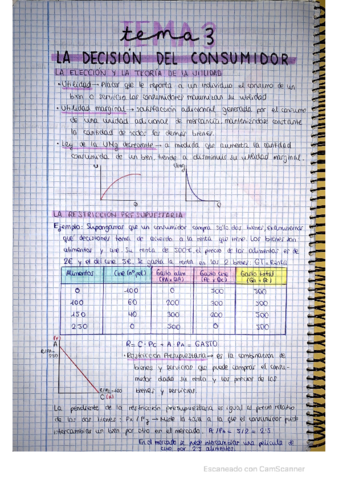 tema 3
LA DECISIÓN DEL CONSUMIDOR
LA ELECCIÓN Y LA TEORÍA DE LA UTILIDAD
· Utilidad → Placer que le reporta a un individuo el consumo de un
bien o servicio. Los consumidores maximizan su utilidad
· Utilidad marginal → satisfacción adicional generada por el consumo
de una unidad adicional de mercancía, manteniéndose constante
la cantidad de todos los demás bienes.
· Ley de la UMg decreciente → a medida que aumenta la cantidad
consumida de un bien, tiende a disminuir su utilidad marginal.
U
UMg
LA RESTRICCIÓN PRESUPUESTARIA
Ejemplo: Supongamos que un consumidor compra solo dos bienes,
que decisiones toma de acuerdo a la renta que tiene. Los bienes son
alimentos y cine. Su renta de 500€, el precio de los alimentos es de
2€ y el del cine 5€. Se gasta la renta en los 2 bienes GT = Renta
Alimentos Cine (nº pel) Gasto alim (PA · QA) Gasto cine (Pc · Qc) Gasto total (GA + Gc)
0 100 0 500 500
100 60 200 300 500
150 40 300 200 500
250 0 500 0 500
R = C · Pc + A · PA = GASTO
· Restricción Presupuestaria → es la combinación de
bienes y servicios que puede comprar el consu-
midor dada su renta y los precios de los
bienes y servicios.
La pendiente de la restricción presupuestaria es igual al precio relativo
de los dos bienes: Px / Py → Mide la tasa a la que el consumidor puede
intercambiar un bien por otro en el mercado. 5/2 = 2'5
En el mercado se puede intercambiar una película de
cine por 2'5 alimentos.
Escaneado con CamScanner